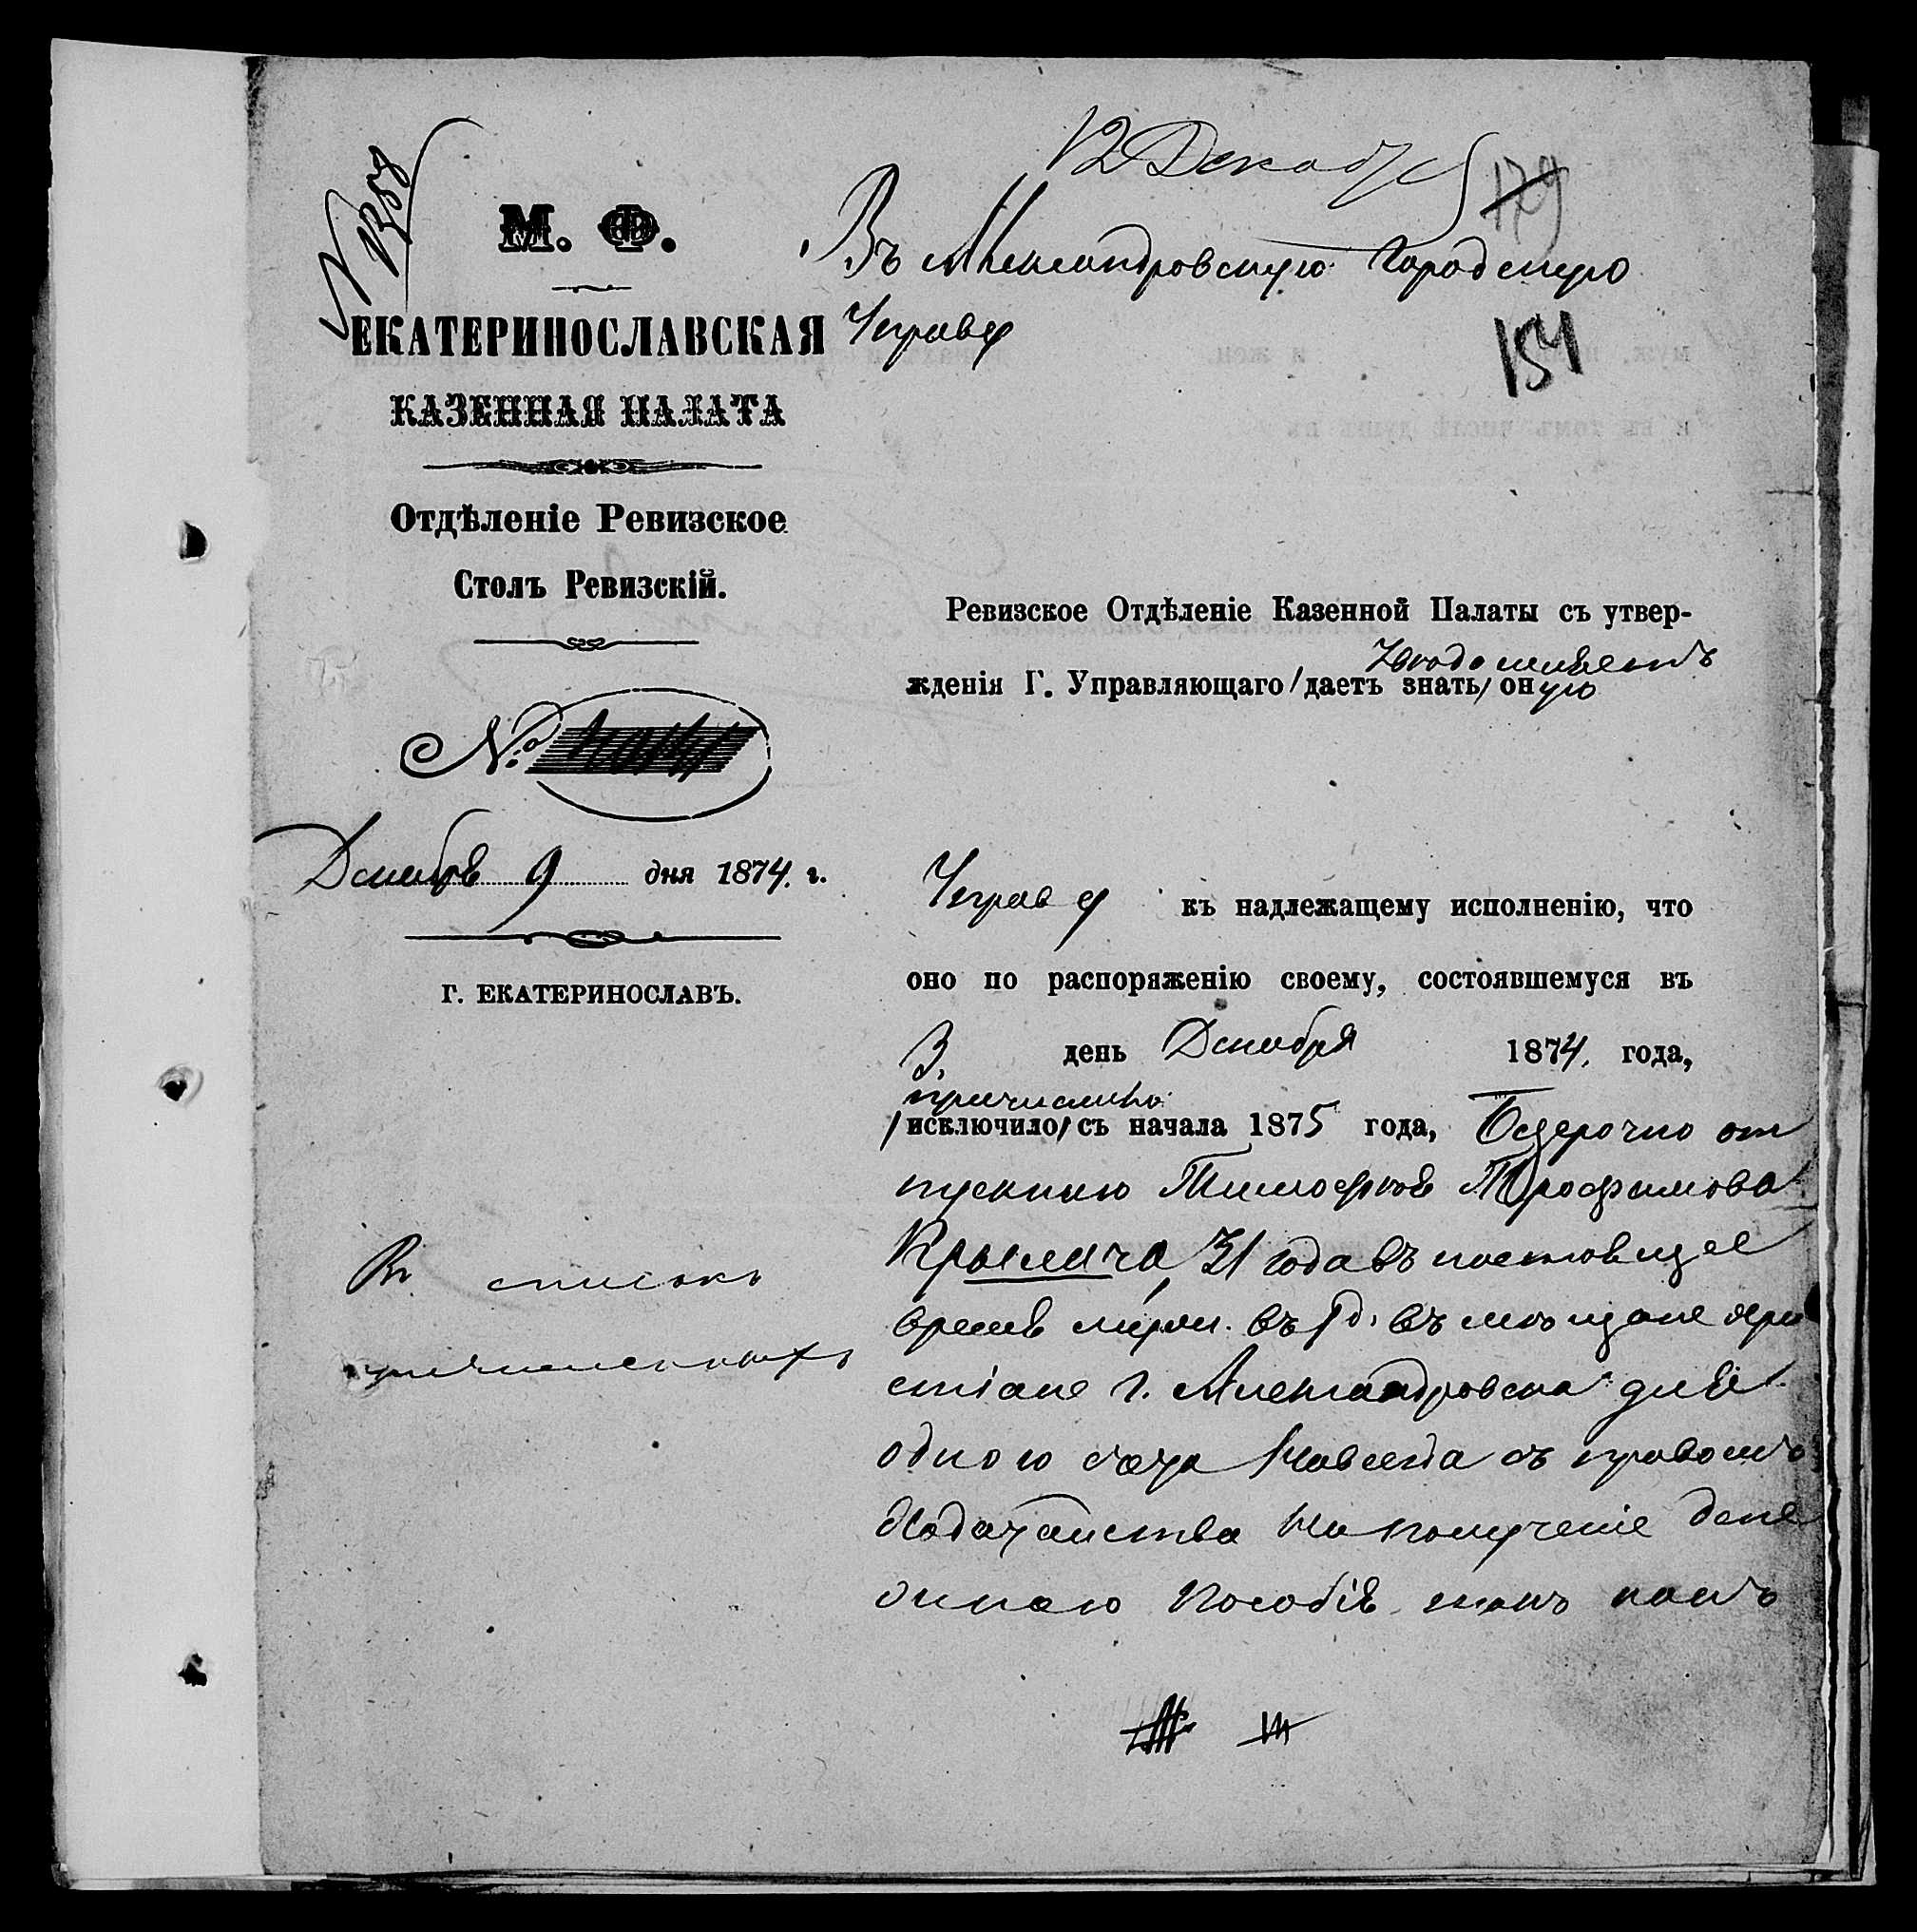 12 Декабря
179
№ 1358
М. Ф.
ЕКАТЕРИНОСЛАВСКАЯ
КАЗЕННАЯ ПАЛАТА
Отдѣленіе Ревизское
Столъ Ревизскій.
№
Декабря 9 дня 1874. г.
Г. ЕКАТЕРИНОСЛАВЪ.
Въ списокъ
причисленныхъ
Въ Александровскую Городскую
Управу
154
Ревизское Отдѣленіе Казенной Палаты съ утвер-
увѣдомляетъ
жденія Г. Управляющаго /даетъ знать/ оную
Управу къ надлежащему исполненію, что
оно по распоряженію своему, состоявшемуся въ
3 день Декабря 1874. года,
причислило
/исключило/ съ начала 1875 года, Безсрочно от
пускного Тимофея Трофимова
Крымача, 31 года въ настоящее
время въ мѣщане
г. Александровска для
одного счета навсегда съ правомъ
ходатайства на полученіе дене
жнаго пособія какъ